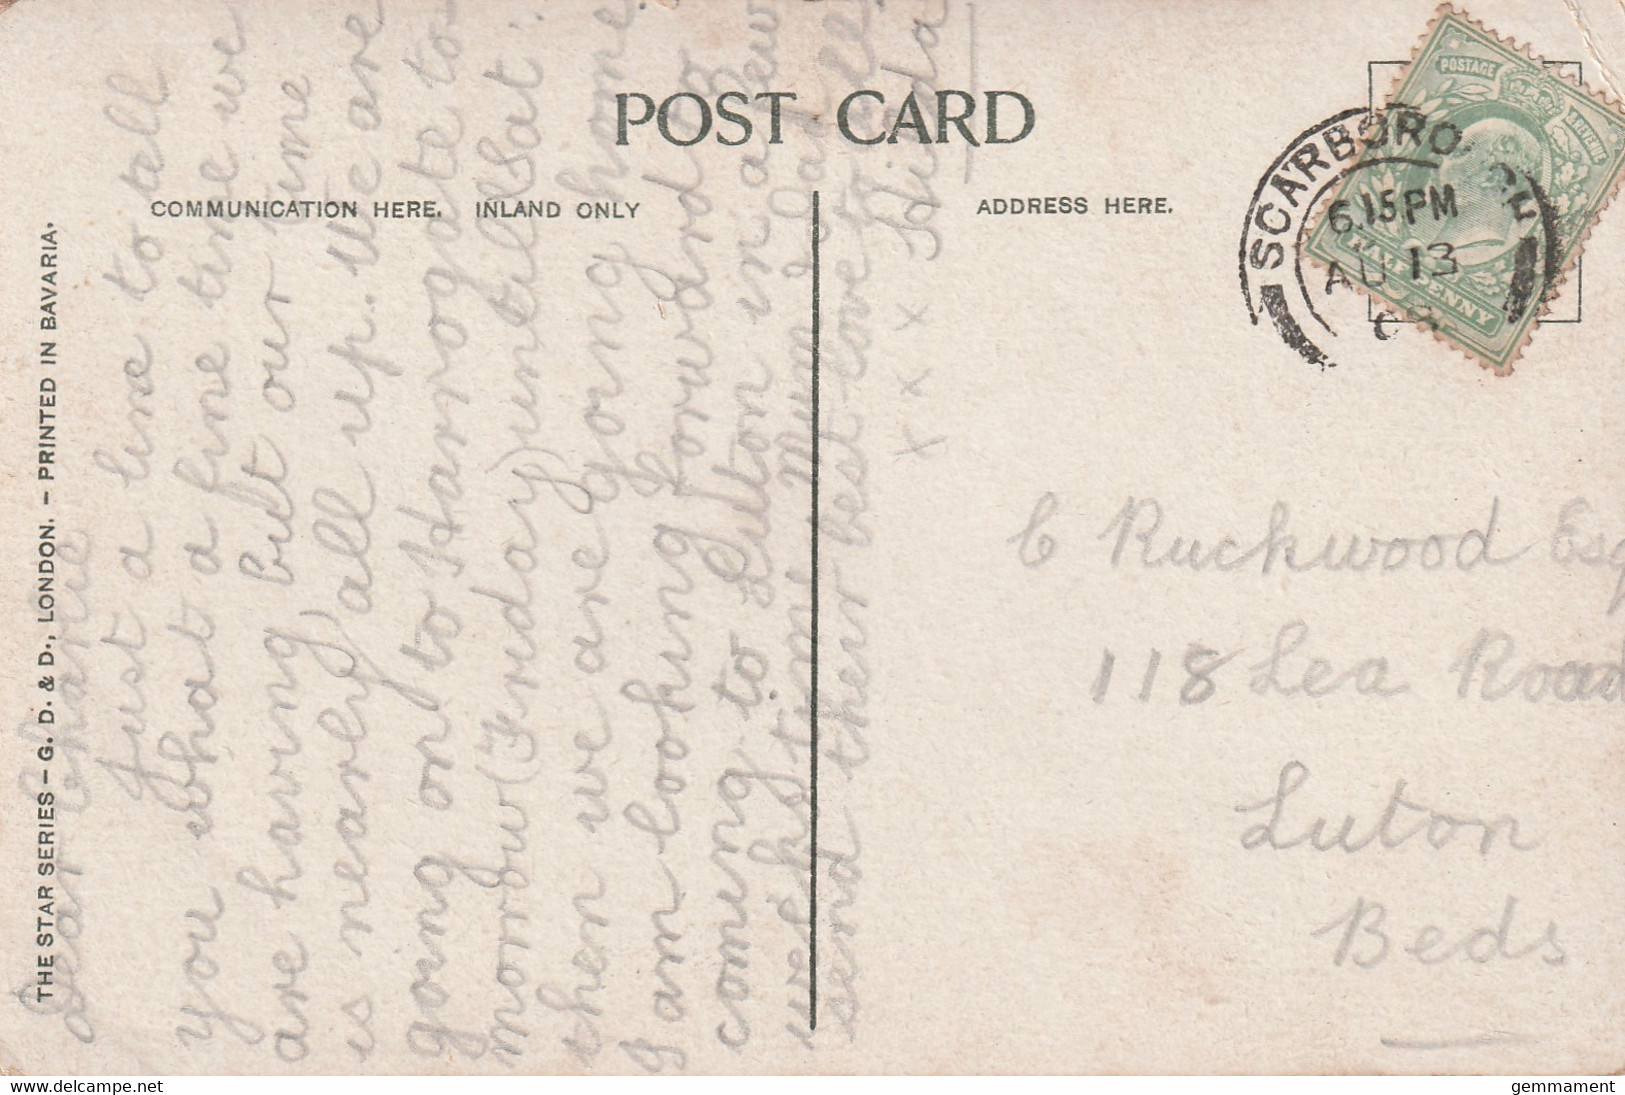 POST CARD
COMMUNICATION HERE. INLAND ONLY
ADDRESS HERE.
THE STAR SERIES – G. D. & D., LONDON. – PRINTED IN BAVARIA.
POSTAGE
REVENUE
HALFPENNY
SCARBORO
6.15PM
AU 13
Dear Charlie
Just a line to tell
you what a fine time we
are having, but our time
is nearly all up. We are
going on to Harrogate to-
morrow (Friday) until Sat:
then we are going home
I am looking forward to
coming to Luton in a few
weeks time Mum & Dad
send their best love to all
Hilda
x x x
C Ruckwood Esq
118 Lea Road
Luton
Beds
delcampe.net
gemmament